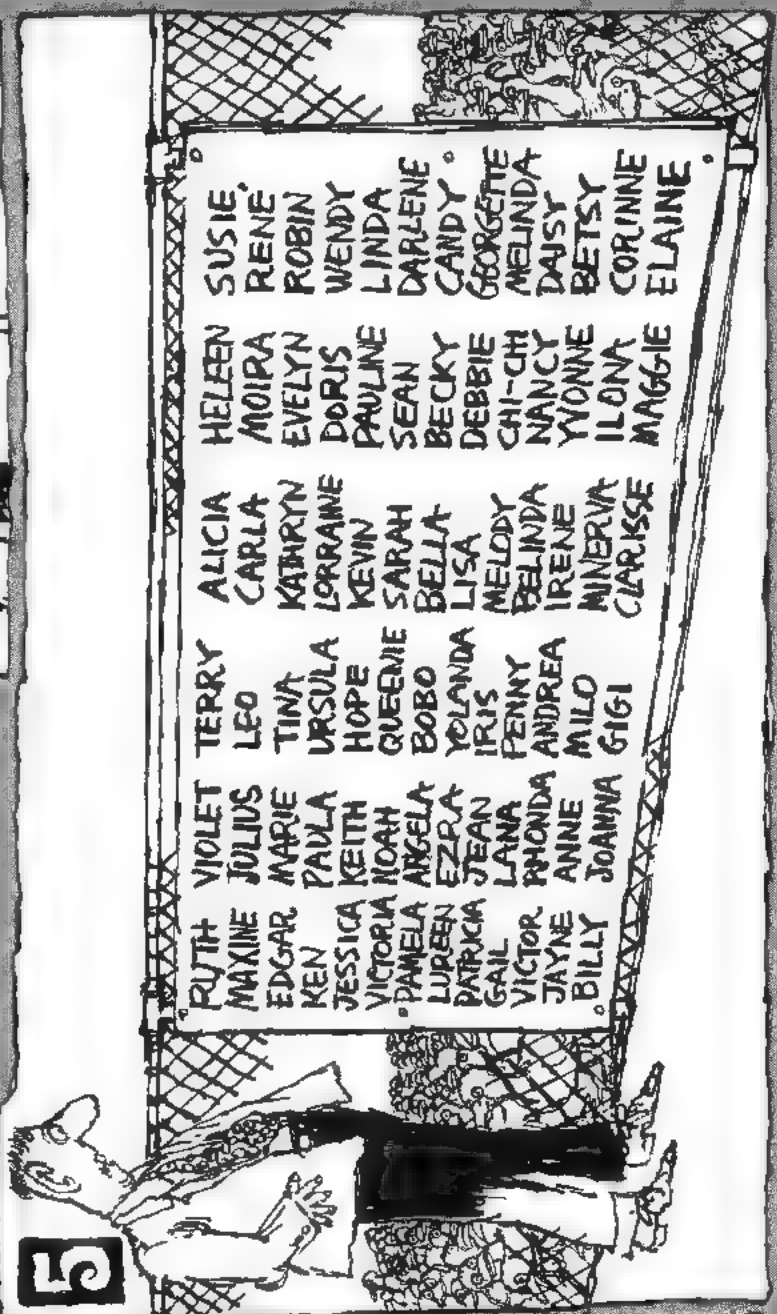 5
RUTH
MAXINE
EDGAR
KEN
JESSICA
VICTORIA
PAMELA
LUREEN
PATRICIA
GAIL
VICTOR
JAYNE
BILLY
VIOLET
JULIUS
MARIE
PAULA
KEITH
NOAH
ANGELA
EZRA
JEAN
LANA
RHONDA
ANNE
JOANNA
TERRY
LEO
TINA
URSULA
HOPE
QUEENIE
BOBO
YOLANDA
IRIS
PENNY
ANDREA
MILO
GIGI
ALICIA
CARLA
KATHRYN
LORRAINE
KEVIN
SARAH
BELLA
LISA
MELODY
BELINDA
IRENE
MINERVA
CLARISSE
HELEEN
MOIRA
EVELYN
DORIS
PAULINE
SEAN
BECKY
DEBBIE
CHI-CHI
NANCY
YVONNE
ILONA
MAGGIE
SUSIE
RENÉ
ROBIN
WENDY
LINDA
DARLENE
CANDY
GEORGETTE
MELINDA
DAISY
BETSY
CORINNE
ELAINE